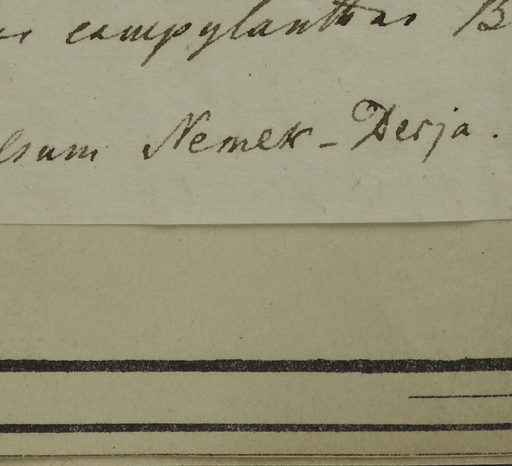 campylanthus B
lsum Nemek-Derja.